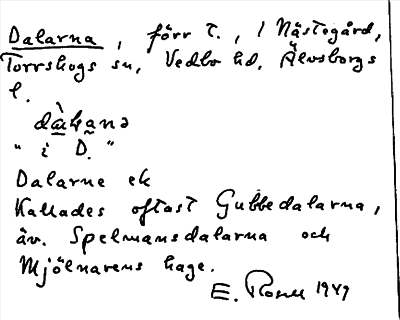 Dalarna, förr t., i Nästegård,
Torrskogs sn, Vedbo hd, Älvsborgs
l.
"i D."
Dalarne ek
Kallades oftast Gubbedalarna,
äv. Spelmansdalarna och
Mjölnarens hage.
E. Rosell 1949